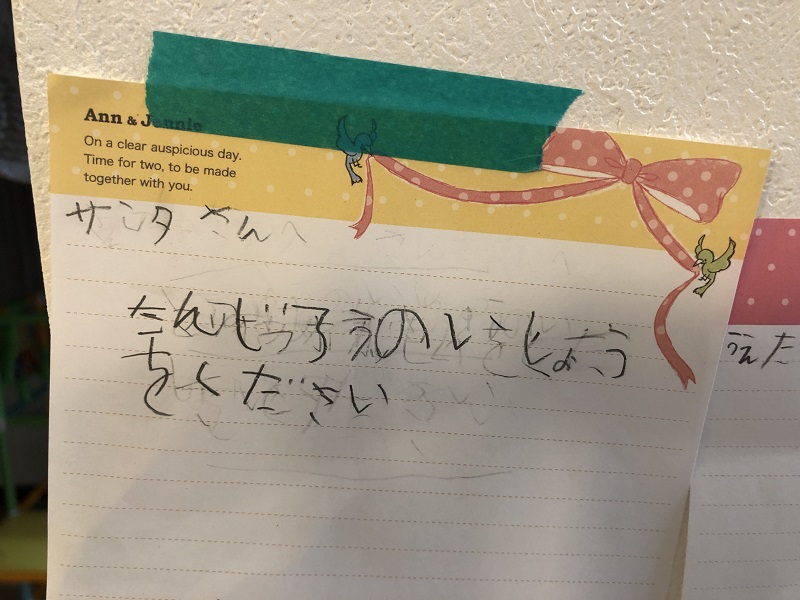 Ann & Jennie
On a clear auspicious day.
Time for two, to be made
together with you.
サンタさんへ
たんじろうのいしょう
をください